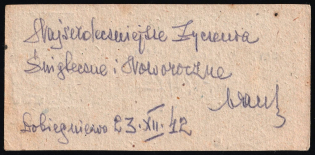 Najserdeczniejsze Życzenia
Świąteczne i Noworoczne
Dobiegniewo 23.XII.42